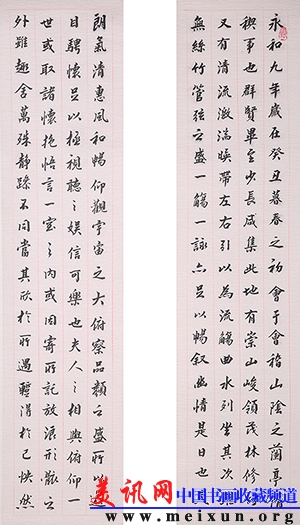 永和九年歲在癸丑暮春之初會于會稽山陰之蘭亭
稧事也群賢畢至少長咸集此地有崇山峻領茂林修
又有清流激湍暎帶左右引以為流觴曲水列坐其次
無絲竹管弦之盛一觴一詠亦足以暢叙幽情是日也
朗氣清惠風和暢仰觀宇宙之大俯察品類之盛所以遊
目騁懷足以極視聽之娛信可樂也夫人之相與俯仰一
世或取諸懷抱悟言一室之內或因寄所託放浪形骸之
外雖趣舍萬殊靜躁不同當其欣於所遇蹔得於己怏然
美讯网 中国书画收藏频道
www.meixun.org